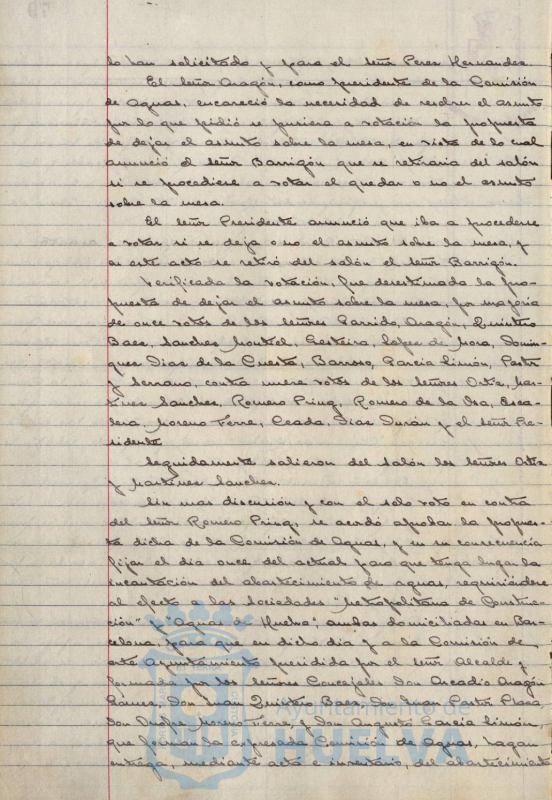 lo han solicitado y para el señor Perez Hernandez.
El señor Aragón, como presidente de la Comisión
de Aguas, encareció la necesidad de resolver el asunto
por lo que pidió se pusiera a votación la propuesta
de dejar el asunto sobre la mesa, en vista de lo cual
anunció el señor Barrigón que se retiraria del salón
si se procediese a votar el quedar o no el asunto
sobre la mesa.
El señor Presidente anunció que iba a procederse
a votar si se deja o no el asunto sobre la mesa, y
en este acto se retiró del salón el señor Barrigón.
Verificada la votación, fue desestimada la pro-
puesta de dejar el asunto sobre la mesa, por mayoria
de once votos de los señores Garrido, Aragón, Quintero
Baez, Sanchez Montiel, Lopez de Mora, Domin-
guez Diaz de la Cuesta, Barroso, Garcia Limón, Pastor
y Serrano, contra nueve votos de los señores Ortiz, Mar-
tinez Sanchez, Romero Pring, Romero de la Osa, Esca-
lera, Moreno Ferre, Ceada, Diaz Durán y el señor Pre-
sidente
Seguidamente salieron del salón los señores Ortiz
y Martinez Sanchez.
Sin mas discusión y con el solo voto en contra
del señor Romero Pring, se acordó aprobar la propues-
ta dicha de la Comisión de Aguas, y en su consecuencia
fijar el dia once del actual para que tenga lugar la
incautación del abastecimiento de aguas, requiriéndose
al efecto a las sociedades "Metropolitana de Construc-
ción" y "Aguas de Huelva", ambas domiciliadas en Bar-
celona, para que en dicho dia y a la Comisión de
este Ayuntamiento presidida por el señor Alcalde y
formada por los señores Concejales Don Arcadio Aragón
Gómez, Don Juan Quintero Baez, Don Juan Pastor Plaza,
Don Onofre Moreno Ferre, y Don Augusto Garcia Limón,
que forman la expresada Comisión de Aguas, hagan
entrega, mediante acta e inventario, del abastecimiento
Ayuntamiento de
HUELVA